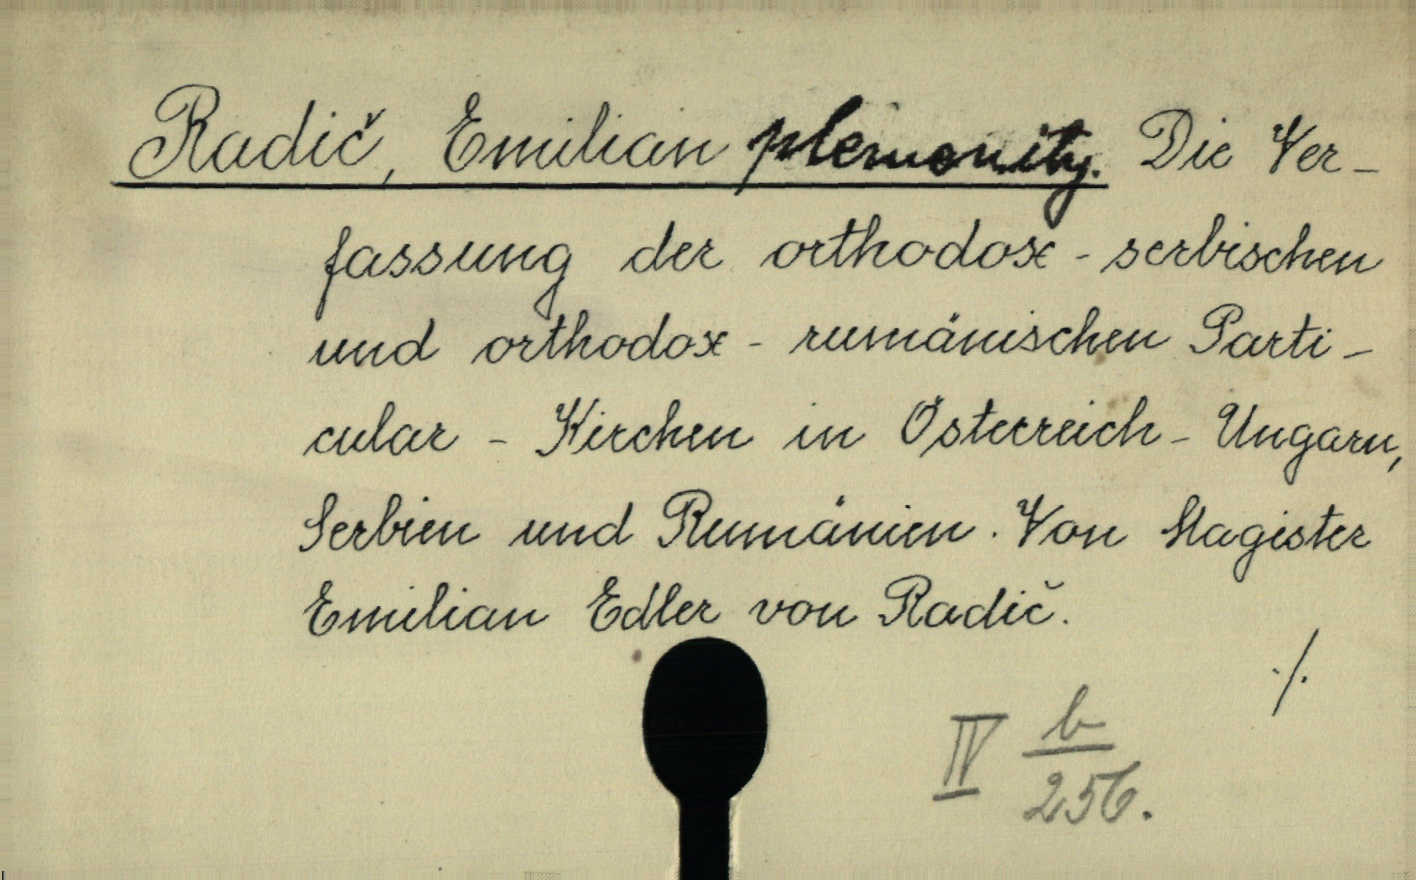 Radič, Emilian plemenity. Die Ver-
fassung der orthodox-serbischen
und orthodox-rumänischen Parti-
cular-Kirchen in Österreich-Ungarn,
Serbien und Rumänien. Von Magister
Emilian Edler von Radič.
./.
IV b/256.